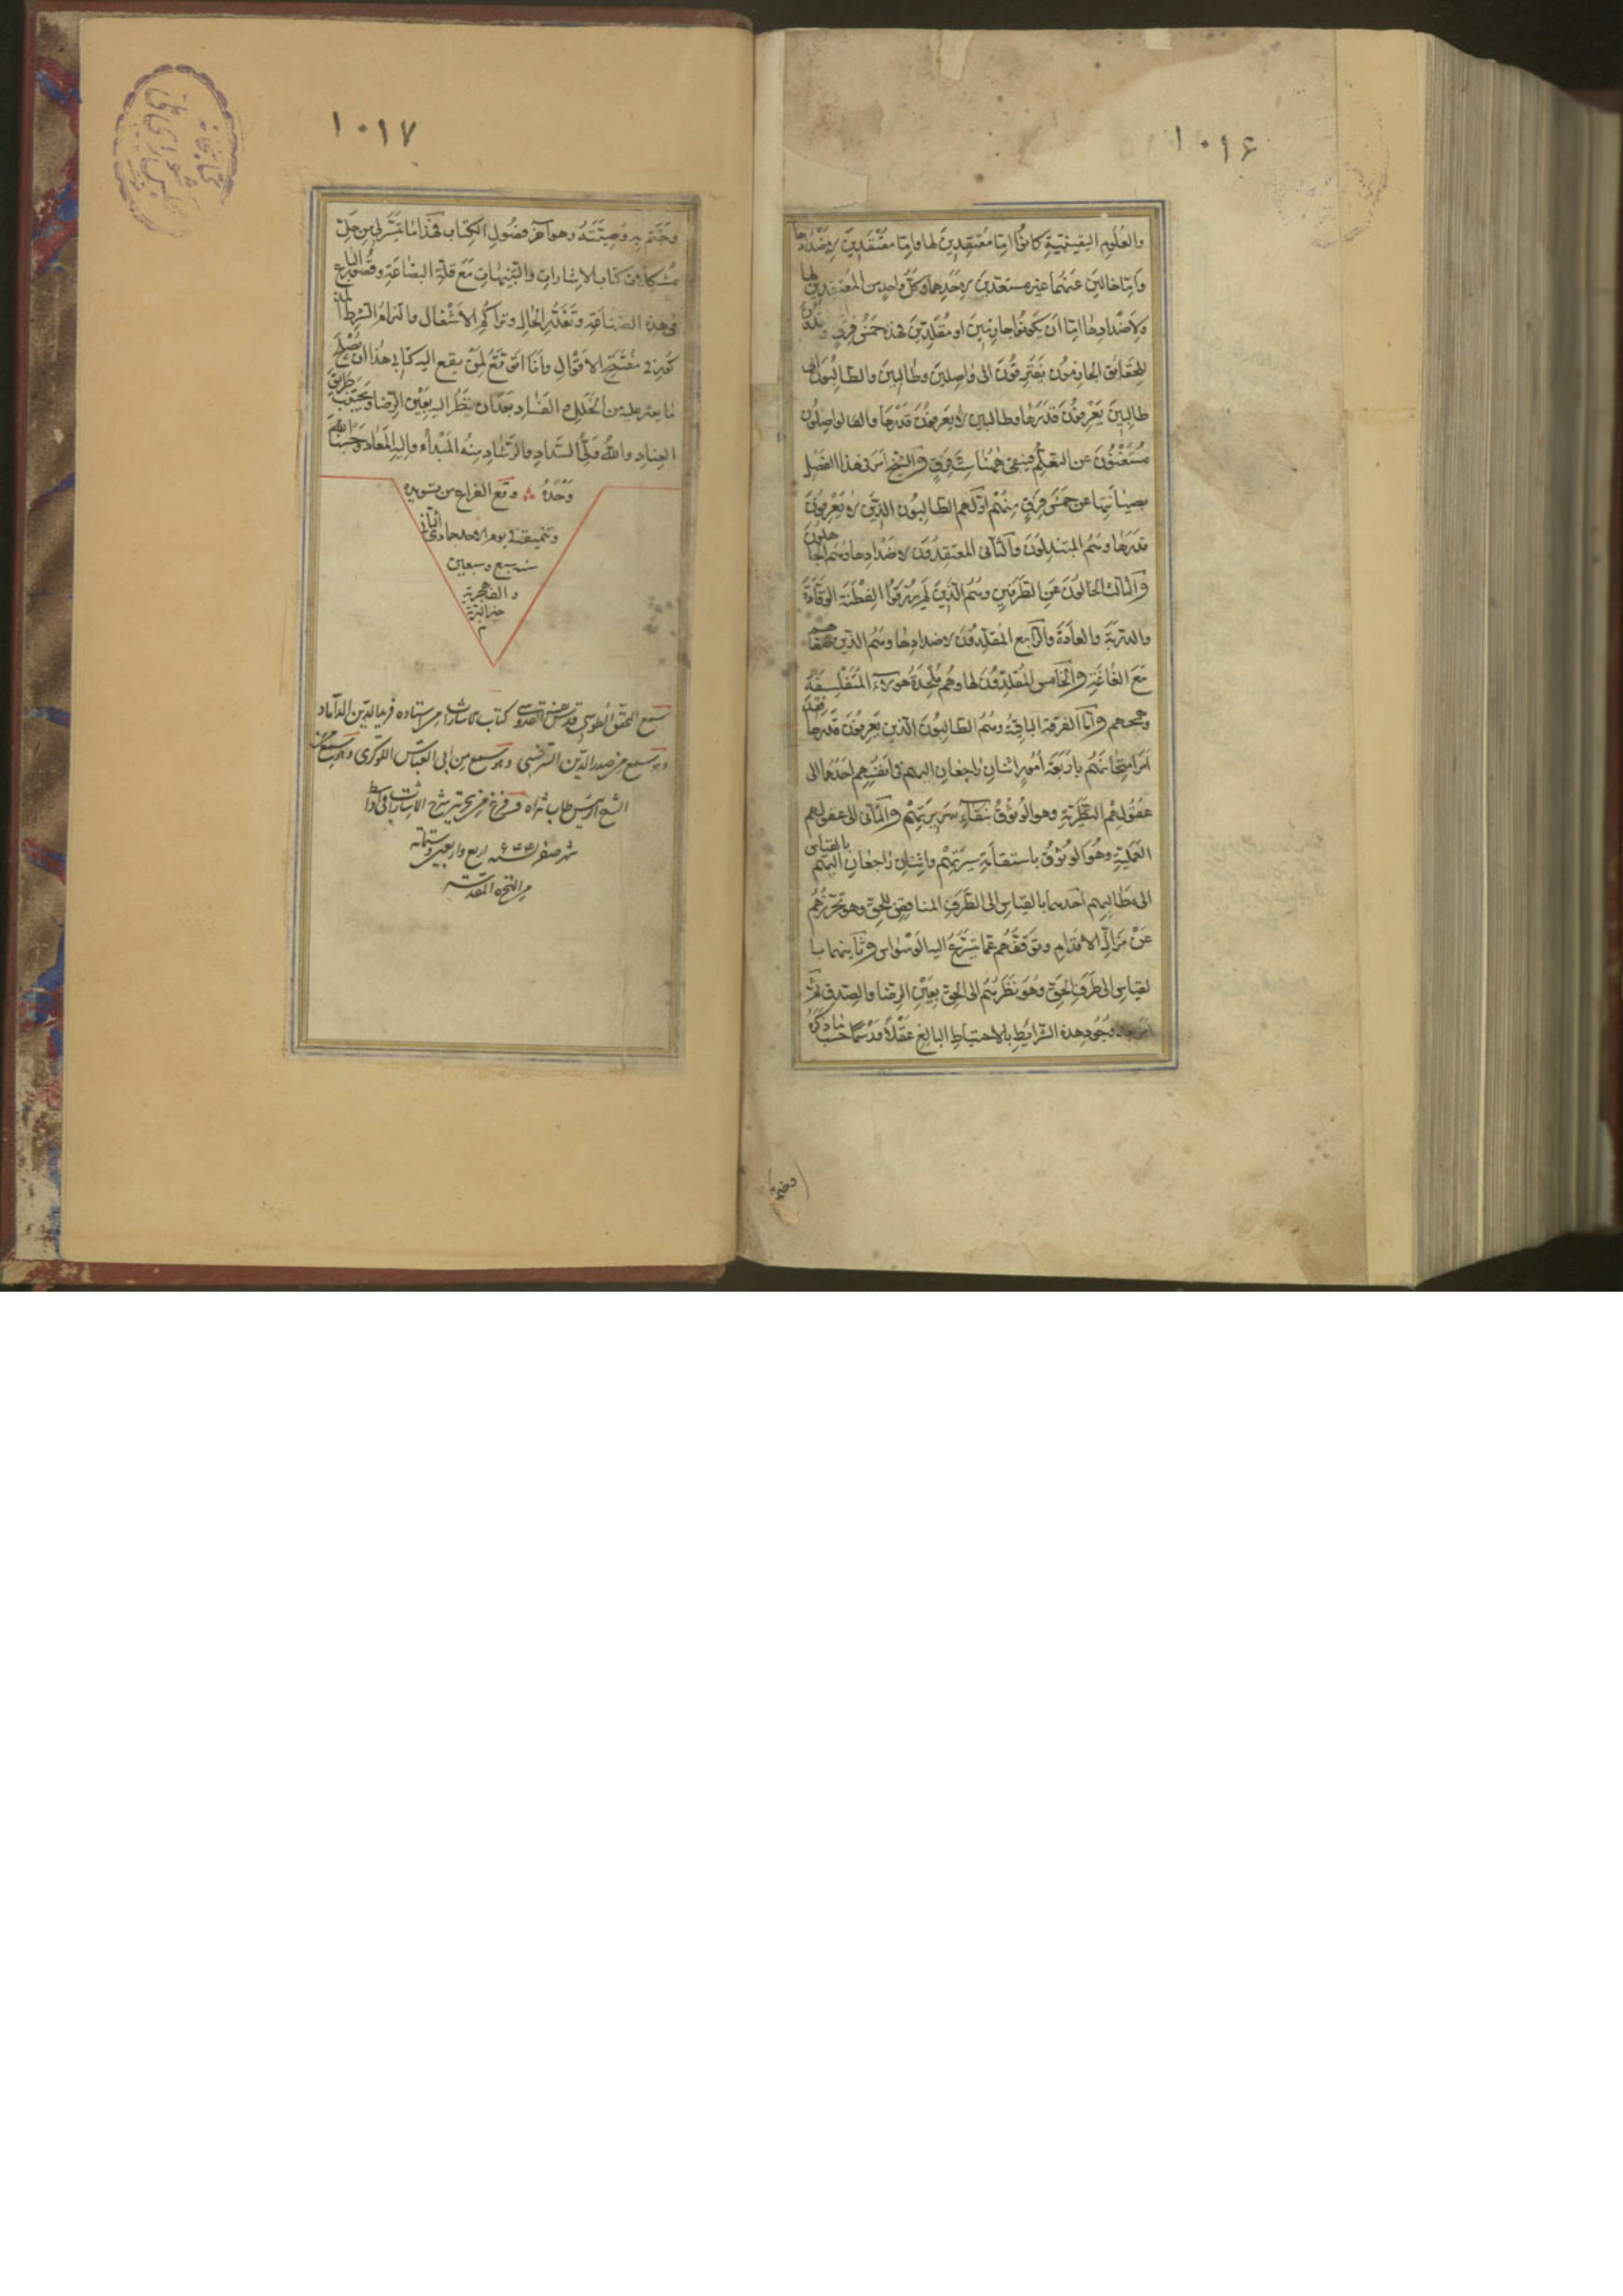 ١٠١۶
والعلوم اليقينية كانوا اما معتقدين لها واما معتقدين لاضدادها
واما خالين عنهما غير مستعدين لاحدهما وكل واحد من المعتقدين لها
ولاضدادها اما ان يكونوا جازمين او مقلدين فهذه خمس فرق
للحقايق الجازمون يفترقون الى واصلين وطالبين والطالبون الى
طالبين يعرفون قدرها وطالبين لا يعرفون قدرها والواصلون
مستغنون عن التعلم فيبقى ههنا ست فرق والشيخ امر فى هذا الفصل
بصيانتها عن خمس فرق منهم اولهم الطالبون الذين لا يعرفون
قدرها وهم المبتذلون والثانى المعتقدون لاضدادها وهم الجاهلون
والثالث الخالون عن الطرفين وهم الذين لم يرزقوا الفطنة الوقادة
والدربة والعادة والرابع المقلدون لاضدادها وهم الذين صغاهم
مع الغاغة والخامس المقلدون لها وهم ملحدة هولاء المتفلسفة
وهمجهم واما الفرقة الباقية وهم الطالبون الذين يعرفون قدرها
امر امتحانهم باربعة امور اثنان راجعان اليهم فى انفسهم احدهما الى
عقولهم النظرية وهو الوثوق بنقاء سريرتهم والثانى الى عقولهم
العملية وهو الوثوق باستقامة سيرتهم واثنان راجعان اليهم بالقياس
الى مطالبهم احدهما بالقياس الى الطرف المناقض للحق وهو تحرزهم
عن مزال الاقدام وتوقفهم عما يتسرع اليه الوسواس وثانيهما با
لقياس الى طرف الحق وهو نظرهم الى الحق بعين الرضا والصدق ثم
امر بعد وجود هذه الشرايط بالاحتياط البالغ عقلا وحسما حسب ما ذكره
١٠١٧
وختم به وصيته وهو آخر فصول الكتاب فهذا ما تيسر لى من حل
مشكلات كتاب الاشارات والتنبيهات مع قلة البضاعة وقصور الباع
فى هذه الصناعة وتعذر الحال وتراكم الاشغال والتزام الشرط المذ
كور فى مفتتح الاقوال وانا اتوقع لمن يقع اليه كتابى هذا ان يصلح
ما يعثر عليه من الخلل والفساد بعد ان ينظر اليه بعين الرضا ويجتنب طريق
العناد والله ولى السداد والرشاد منه المبدأ واليه المعاد وحسبنا الله
وحده وقع الفراغ من تسويده
وتنميقه فى يوم الاحد جمادى الثانى
سنه سبع وسبعين
والف هجرية
سمع المحقق الطوسى كتاب الاشارات من استاده فريد الدين الداماد
وهو سمع من صدر الدين السرخسى وهو سمع من ابى العباس اللوكرى وهو سمع من
الشيخ الرئيس طاب ثراه وفرغ من تحرير شرح الاشارات فى اواسط
شهر صفر سنه ۶۴۴ اربع واربعين وستمائه